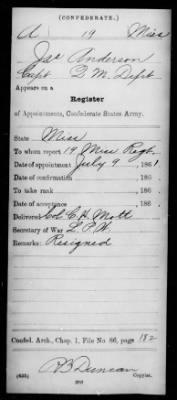 (CONFEDERATE.)
A 19 Miss
Jas Anderson
Capt Q. M. Dept
Appears on a
Register
of Appointments, Confederate States Army.
State Miss
To whom report 19 Miss Regt
Date of appointment July 9, 1861
Date of confirmation , 186
To take rank , 186
Date of acceptance , 186
Delivered Col C. H. Mott
Secretary of War L. P. W.
Remarks: Resigned
Confed. Arch., Chap. 1, File No. 86, page 182
R B Duncan
(635) Copyist.